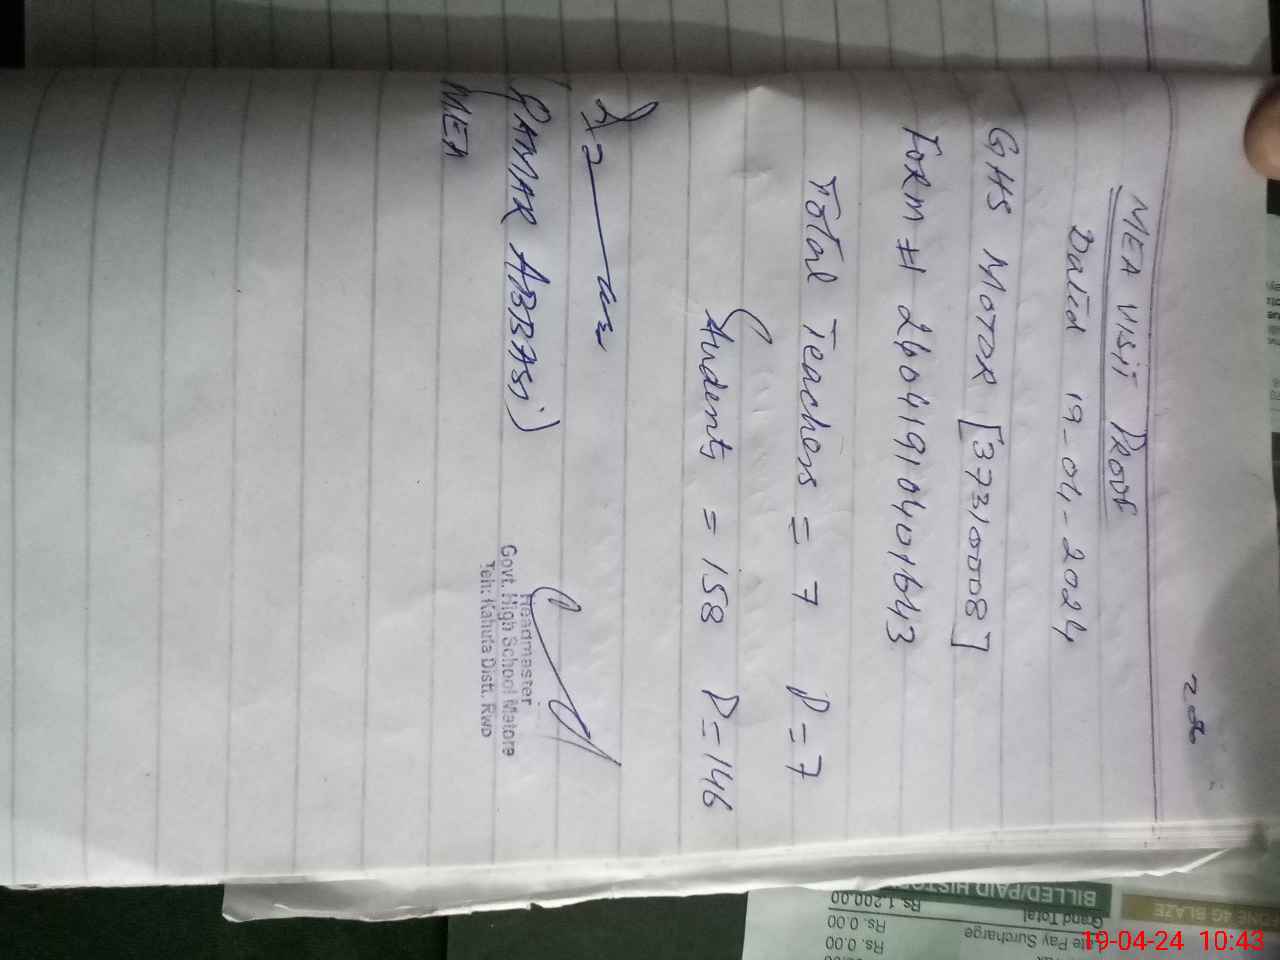 MEA VISIT PROOF
Dated 19-04-2024
GHS MOTOR [37310008]
FORM # 2604191040401643
Total Teachers = 7 P=7
Students = 158 P=146
QAMAR ABBASi)
MEA
Headmaster
Govt. High School Matore
Teh: Kahuta Distt. Rwp
BILLED/PAID HISTO
Rs. 1,200.00
Grand Total
Rs. 0.00
ate Pay Surcharge
Rs. 0.00
ONE 4G BLAZE
19-04-24 10:43